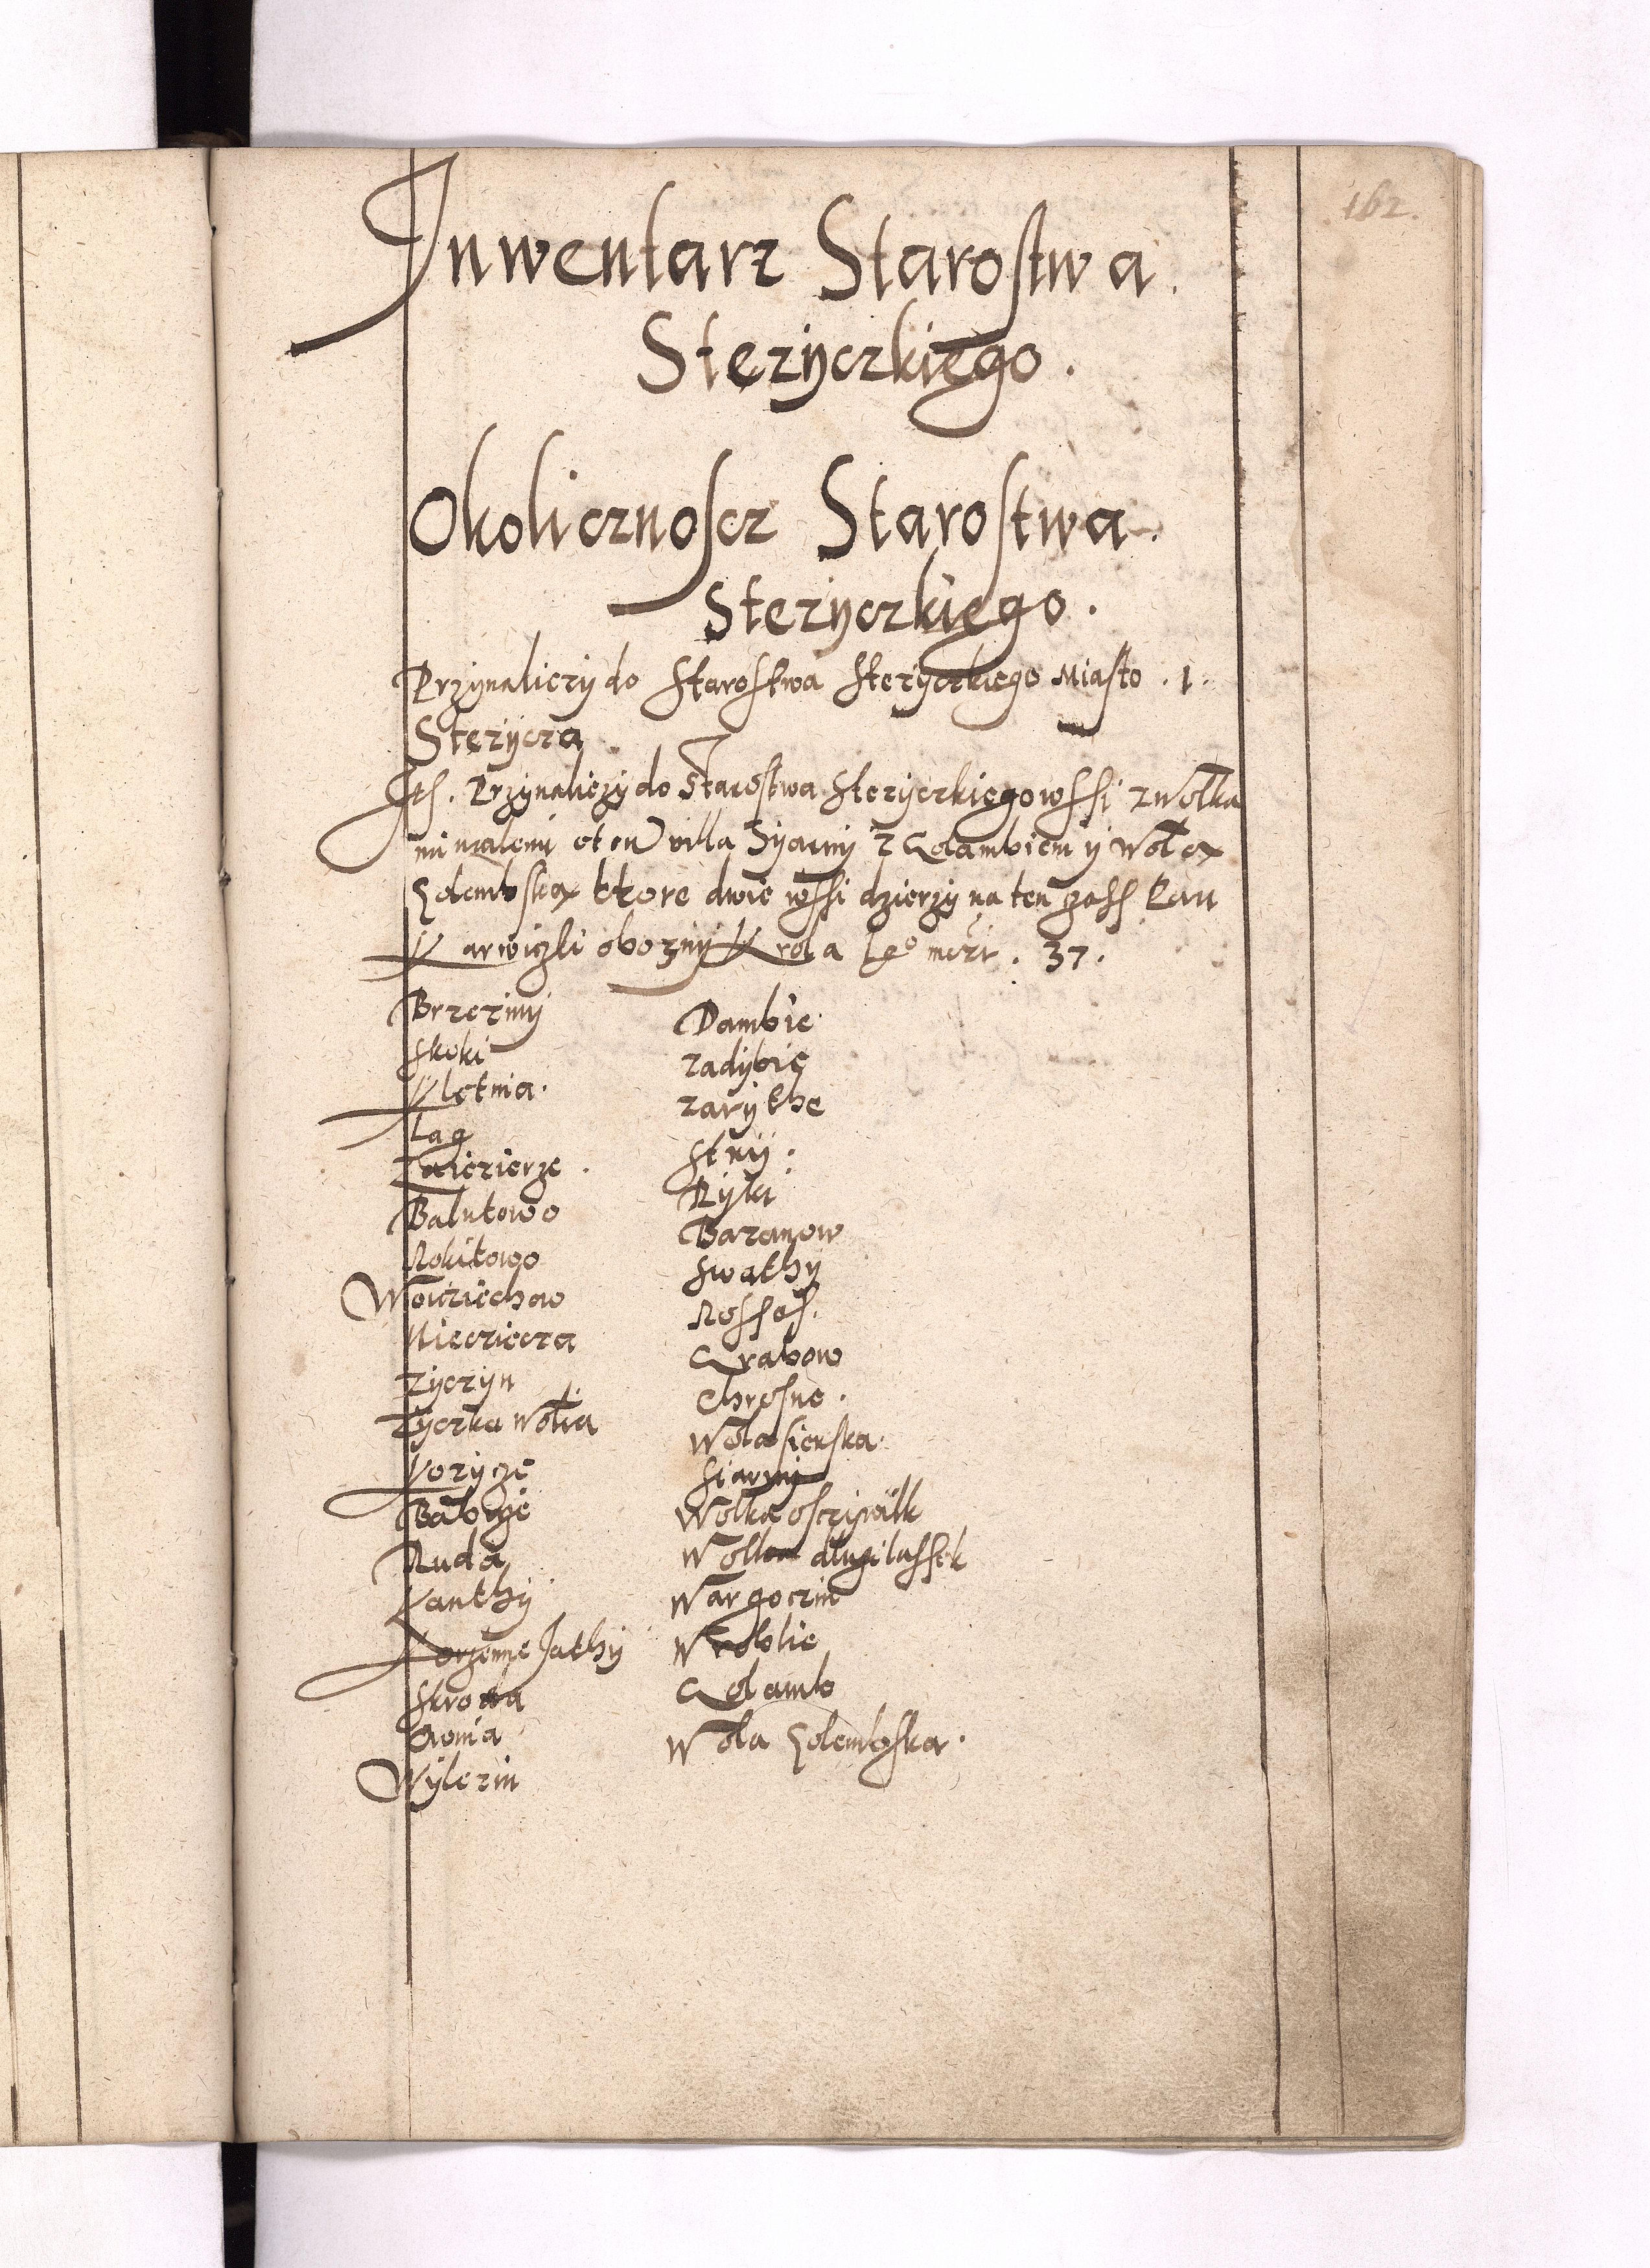 162.
Inwentarz Starostwa.
Stezyczkiego.
Okolicznoscz Starostwa.
Stezyczkiego.
Przynaliezy do Starostwa Stezyczkiego Miasto . 1.
Stezycza
Przynaliezy do Starostwa Stezyczkiego wssi z Wolka
mi malemi et villa z Golambiem y Wola
Golembska ktore dwie wssi dzierzy na ten Pan
Karwiczki obozny Krola . 37.
Brzeziny
Skoki
Kletnia.
Lag
Zaiezierze.
Balutowo
Rokitowo
Woicziechow
Niecziecza
Zyczyn
Zyczka Wolia
Korycze
Babicze
Ruda
Kanthy
Korzenne Jathy
Skroda
Wylezin
Dambie
Zadybie
Zarythe
Ryki
Baranow
Swathy
Rossosz.
Grabow
Chrosne.
Wola sierska.
Wolka
Wolka dlugi lassek
Wargoczin
Wroblie
Golamb
Wola Golembska.